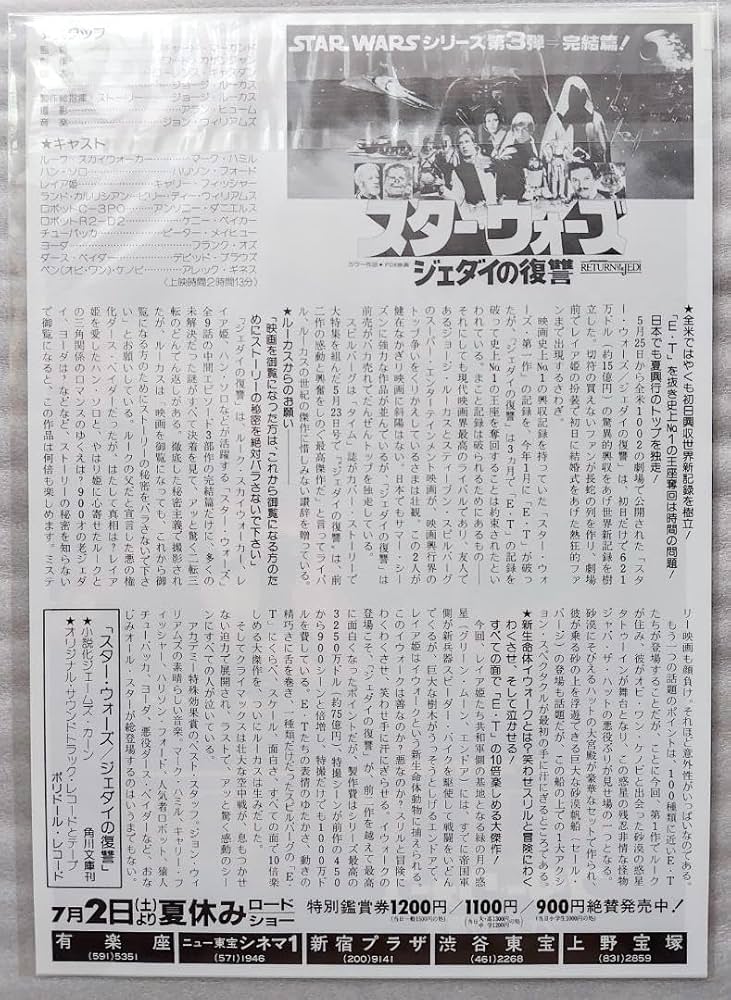 スタッフ
監督 リチャード・マーカンド
ジョージ・ルーカス
製作総指揮・ストーリー ジョージ・ルーカス
撮影 アラン・ヒューム
音楽 ジョン・ウィリアムズ
★キャスト
ルーク・スカイウォーカー マーク・ハミル
ハン・ソロ ハリソン・フォード
レイア姫 キャリー・フィッシャー
ランド・カルリシアン ビリー・ディー・ウィリアムス
ロボットC-3PO アンソニー・ダニエルス
ロボットR2-D2 ケニー・ベイカー
チューバッカ ピーター・メイヒュー
ヨーダ フランク・オズ
ダース・ベイダー デビッド・プラウズ
ベン(オビ・ワン)・ケノービ アレック・ギネス
(上映時間2時間13分)
STAR WARSシリーズ第3弾=完結篇!
スター・ウォーズ
ジェダイの復讐
RETURN OF THE JEDI
★全米ではやくも初日興収世界新記録を樹立!
「E・T」を抜き史上No.1の王座奪回は時間の問題!
日本でも夏興行のトップを独走!
5月25日から全米1002の劇場で公開された「スタ
ー・ウォーズ/ジェダイの復讐」は、初日だけで621
万ドル(約15億円)の驚異的興収をあげ世界新記録を樹
立した。切符の買えないファンが長蛇の列を作り、劇場
前でレイア姫の扮装で初日に結婚式をあげた熱狂的ファ
ンまで出現するさわぎ。
映画史上No.1の興収記録を持っていた「スター・ウォ
ーズ・第一作」の記録を、今年1月に「E・T」が破っ
たが、「ジェダイの復讐」は3ヵ月で「E・T」の記録を
破って史上No.1の王座を奪回することは約束されたとい
われている。まこと記録は破られるためにあるもの――
それにしても現代映画界最高のライバルであり、友人で
あるジョージ・ルーカスとスティーブン・スピルバーグ
のスーパー・エンターテイメント映画が、映画興行界の
トップ争いをくりかえしているさまは壮観。この2人が
健在なかぎり映画に斜陽はない。日本でもサマー・シー
ズンに強力な作品が並んでいるが、「ジェダイの復讐」は
前売がバカ売れでだんぜんトップを独走している。
スピルバーグは「タイム」誌がカバー・ストーリーで
大特集を組んだ5月23日号で「ジェダイの復讐」は、前
二作の感動と興奮をしのぐ最高傑作だ」と言ってライバ
ル、ルーカスの世紀の傑作に惜しみない讃辞を贈っている。
★ルーカスからのお願い――
「映画を御覧になった方は、これから御覧になる方のた
めにストーリーの秘密を絶対バラさないで下さい」
「ジェダイの復讐」は、ルーク・スカイウォーカー、レ
イア姫、ハン・ソロなどが活躍する「スター・ウォーズ」
全9話の中間エピソード3部作の完結篇だけに、多くの
未解決だった謎がすべて決着を見て、アッと驚く二転三
転のどんでん返しがある。徹底した秘密主義で撮影され
たが、ルーカスは「映画を御覧になっても、これから御
覧になる方のためにストーリーの秘密をバラさないで下さ
い」とお願いしている。ルークの父だと宣言した悪の権
化ダース・ベイダーだったが、はたして真相は?レイア
姫を愛したハン・ソロと、やはり姫に心寄せたルークと
の三角関係のロマンスのゆくえは?900才の老ジェダ
イ、ヨーダは?などなど、ストーリーの秘密を知らない
で御覧になると、この作品は何倍も楽しめます。ミステ
リー映画も顔負け。それほど意外性がいっぱいなのである。
もう一つの話題のポイントは、100種類に近いE・T
たちが登場することだが、ことに今回、第1作でルーク
が住み、彼がオビ・ワン・ケノービと出会った砂漠の惑星
タトゥーインが舞台となり、この惑星の残忍非情な怪物
ジャバ・ザ・ハットの悪役ぶりが見せ場の一つとなる。
砂漠にそびえるハットの大宮殿が豪華なセットで作られ、
彼が乗る砂の上を浮遊できる巨大な砂漠帆船=セイル・
バージ)の登場も話題だが、この船の上での1大アクシ
ョン・スペクタクルが最初の手に汗にぎるところである。
★新生命体イウォークとは?笑わせスリルと冒険にわく
わくさせ、そして泣かせる!
すべての面で「E・T」の10倍楽しめる大傑作!
今回、レイア姫たち共和軍側の基地となる緑の月の惑
星「グリーン・ムーン、エンドア」には、すでに帝国軍
側が新兵器スピーダー・バイクを駆使して戦闘をいどん
でくるが、巨大な樹木がうっそうとしげるエンドアで、
レイア姫はイウォークという新生命体動物に捕えられる。
このイウォークは善なのか?悪なのか?スリルと冒険に
わくわくさせ、笑わせ手に汗にぎらせる。イウォークの
登場こそ、「ジェダイの復讐」が、前二作を越えて最高
に面白くなったポイントだが、製作費はシリーズ最高の
3250万ドル(約75億円)、特撮シーンが前作の450
から900シーンと倍増し、特撮だけでも1000万ド
ルを費している。E・Tたちの表情のゆたかさ、動きの
精巧さに舌を巻き、一種類だけだったスピルバーグの「E・
T」にくらべ、スケール、面白さ、すべての面で10倍楽
しめる大傑作を、ついにルーカスは生みだした。
そしてクライマックスは壮大な空中戦が、息もつかせ
ない迫力で展開され、ラストで、アッと驚く感動のシー
ンにすべての人が泣いている。
アカデミー特殊効果賞のベスト・スタッフ、ジョン・ウィ
リアムズの素晴らしい音楽、マーク・ハミル、キャリー・フ
ィッシャー、ハリソン・フォード、人気者ロボット、猿人
チューバッカ、ヨーダ、悪役ダース・ベイダーなど、おな
じみオール・スターが総登場するのはいうまでもない。
「スター・ウォーズ/ジェダイの復讐」
★小説化ジェームズ・カーン 角川文庫刊
★オリジナル・サウンドトラック・レコードとテープ
ポリドール・レコード
7月2日(土)より夏休みロードショー
特別鑑賞券1200円/1100円/900円絶賛発売中!
有楽座 (591)5351
ニュー東宝シネマ1 (571)1946
新宿プラザ (200)9141
渋谷東宝 (461)2268
上野宝塚 (831)2859